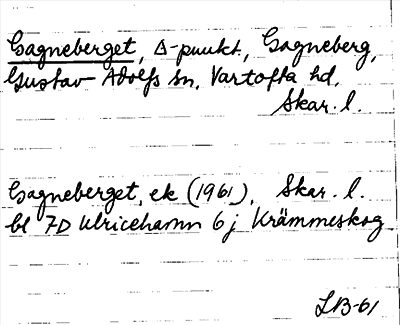 Gagneberget, Δ-punkt, Gagneberg,
Gustav Adolfs sn, Vartofta hd,
Skar. l.
Gagneberget, ek (1961), Skar. l.
bl 7D Ulricehamn 6 j Krämmeskog
LB-61